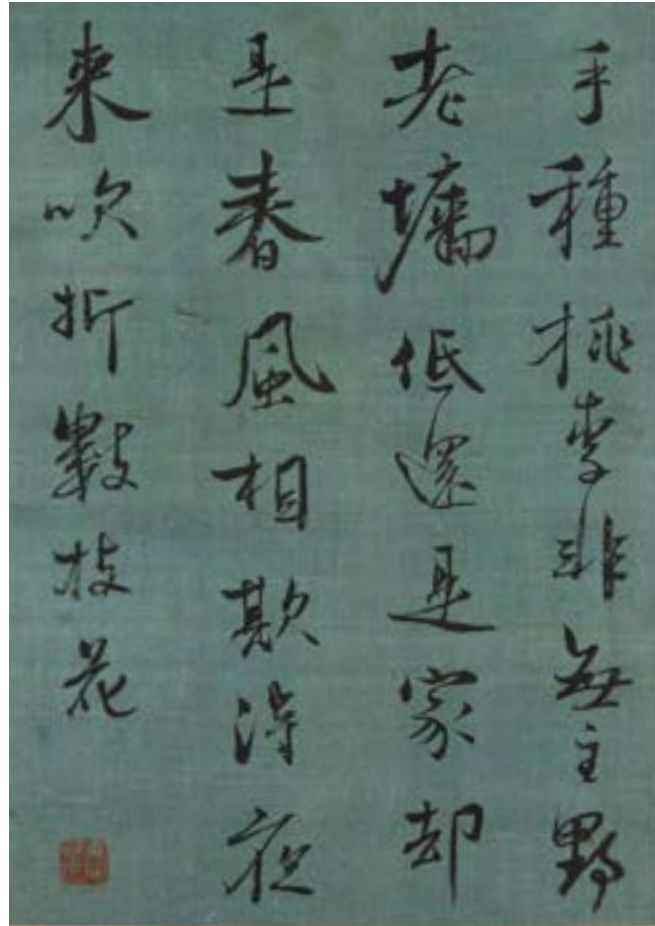 手種桃李非無主野
老墻低還是家却
是春風相欺得夜
来吹折數枝花